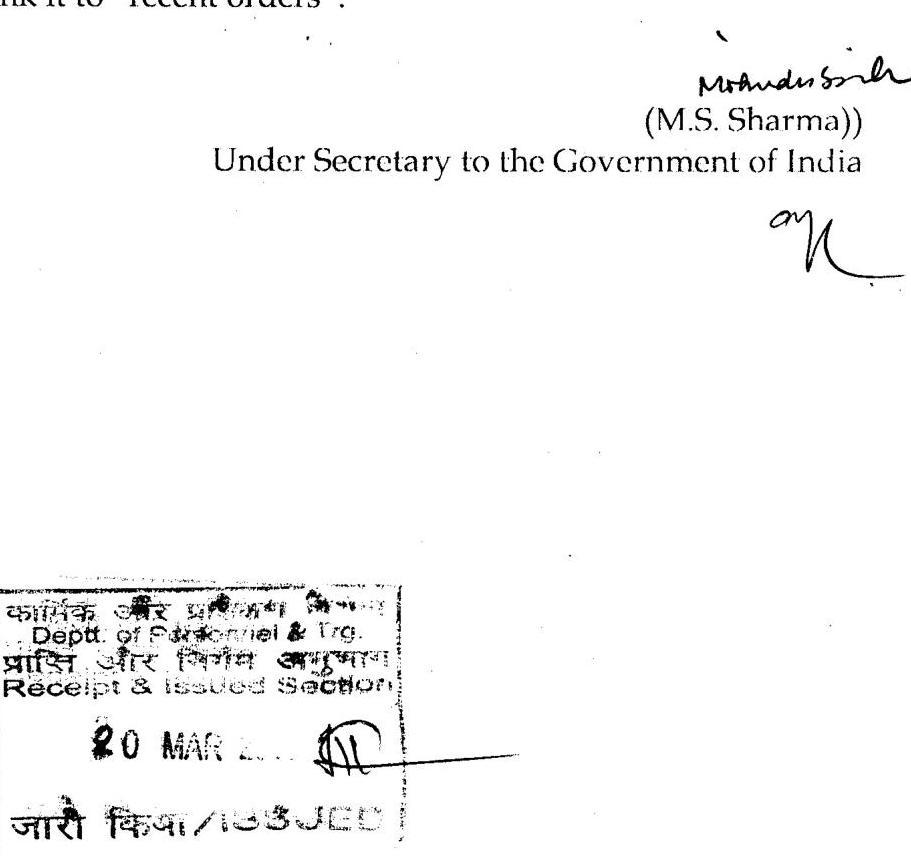 nk it to "recent orders".
(M.S. Sharma))
Under Secretary to the Government of India
कार्मिक और प्रशिक्षण विभाग
Deptt. of Personnel & Trg.
प्राप्ति और निर्गम अनुभाग
Receipt & Issued Section
20 MAR
जारी किया/ISSUED